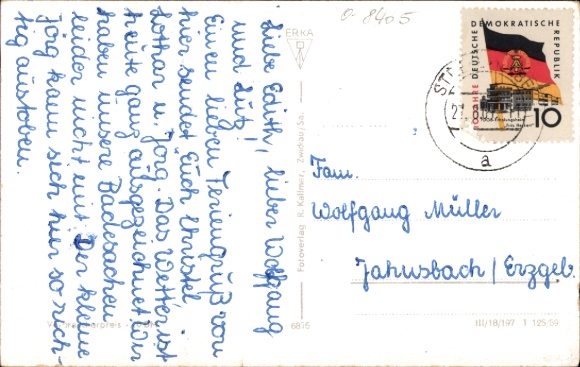 Liebe Edith, lieber Wolfgang
und Lutz!
Einen lieben Feriengruß von
hier sendet Euch Christel
Lothar u. Jörg. Das Wetter ist
heute ganz ausgezeichnet. Wir
haben unsere Badesachen
leider nicht mit. Der kleine
Jörg kann sich hier so rich-
tig austoben.
ERKA
Fotoverlag R. Kallmer, Zwickau/Sa.
6875
DEUTSCHE DEMOKRATISCHE REPUBLIK
10 JAHRE
10
a
Fam.
Wolfgang Müller
Jahnsbach/Erzgeb.
III/18/197 1 125-59